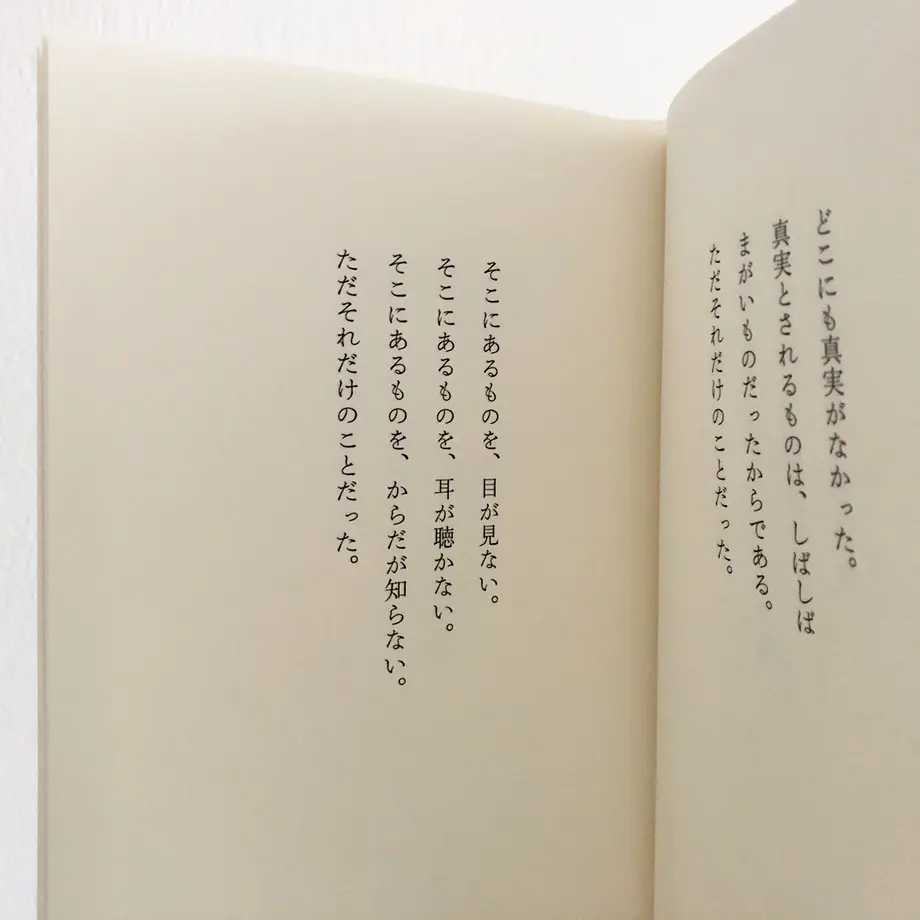 どこにも真実がなかった。
真実とされるものは、しばしば
まがいものだったからである。
ただそれだけのことだった。
そこにあるものを、目が見ない。
そこにあるものを、耳が聴かない。
そこにあるものを、からだが知らない。
ただそれだけのことだった。